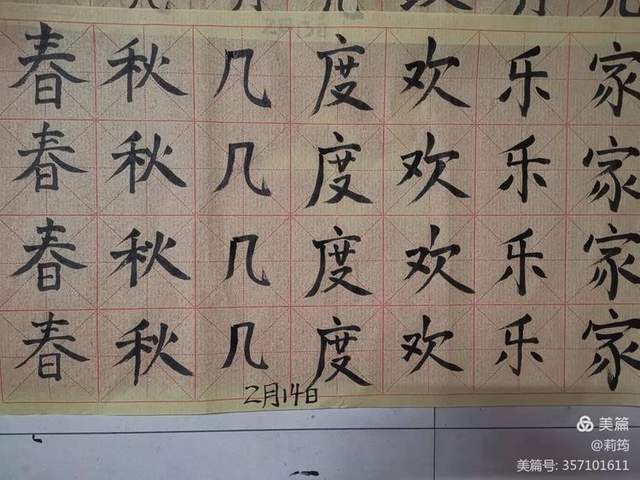 春秋几度欢乐家
春秋几度欢乐家
春秋几度欢乐家
春秋几度欢乐家
2月14日
美篇
@莉筠
美篇号: 357101611